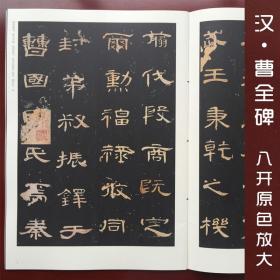 汉·曹全碑
八开原色放大
武王秉乾之機
翦伐殷商既定
爾勳福祿攸同
封弟叔振鐸于
曹國因氏焉秦